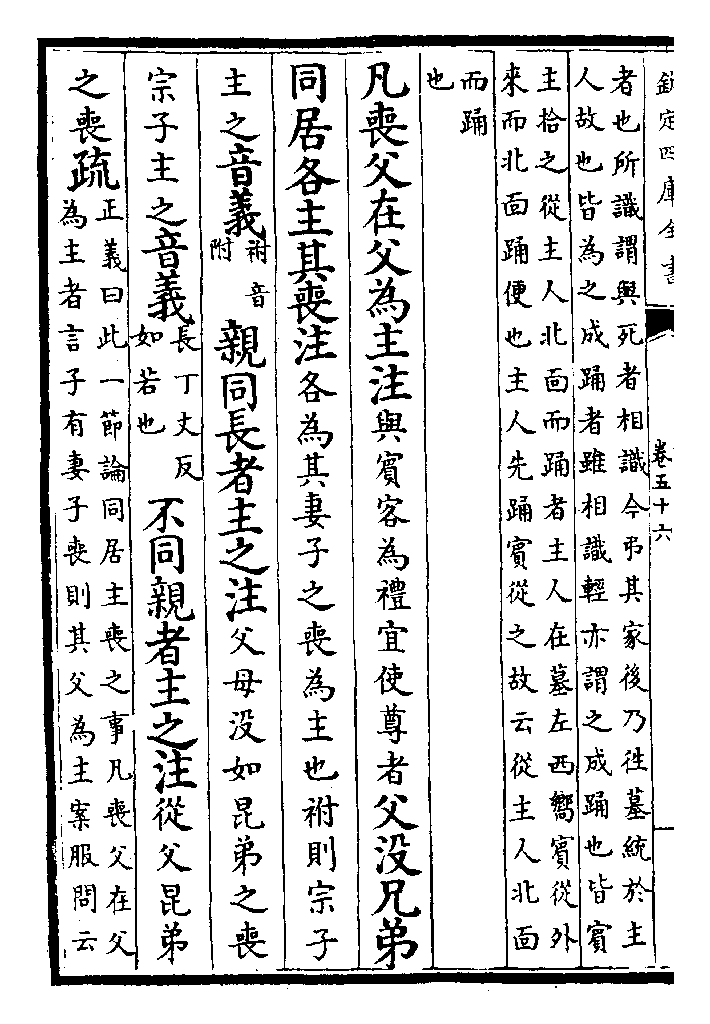 欽定四庫全書
卷五十六
者也所識謂與死者相識今弔其家後乃往墓統於主
人故也皆為之成踊者雖相識輕亦謂之成踊也皆賓
主拾之從主人北面而踊者主人在墓左西嚮賓從外
來而北面踊便也主人先踊賓從之故云從主人北面
而踊
也
凡喪父在父為主注與賓客為禮宜使尊者父没兄弟
同居各主其喪注各為其妻子之喪為主也祔則宗子
主之音義祔音
附
親同長者主之注父母没如昆弟之喪
宗子主之音義長丁丈反
如若也
不同親者主之注從父昆弟
之喪疏正義曰此一節論同居主喪之事凡喪父在父
為主者言子有妻子喪則其父為主案服問云